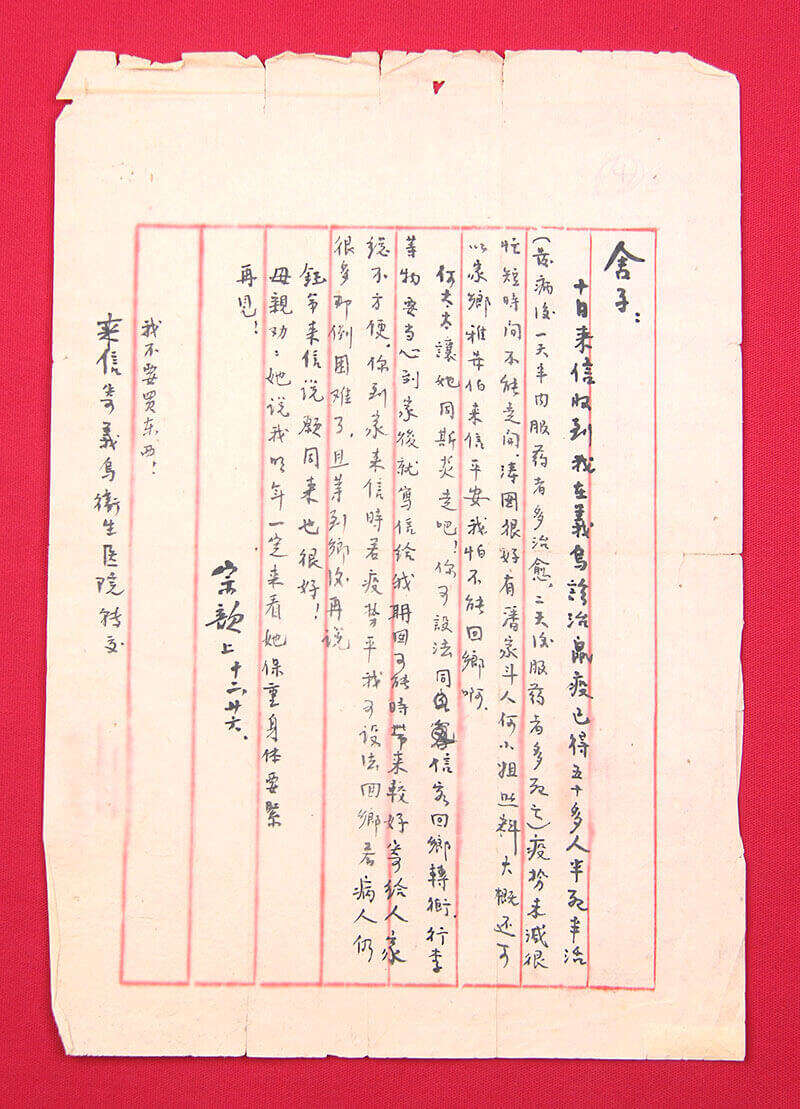 舍子：
十日来信收到我在義烏診治鼠疫已得五十多人半死半治
（發病後一天半内服药者多治愈，二天後服药者多死亡）疫势未减很
忙短時间不能走開。涛图很好有潘家斗人何小姐照料大概还可
以家鄉雅母伯来信平安我怕不能回鄉啊。
何太太讓她同斯炎走吧！你可設法同 信客回鄉轉衢。行李
等物要当心到家後就寫信给我 可能時带来較好寄给人家
總不方便。你到家来信時若疫势平我可設法回鄉若病人仍
很多那倒困难了，且等到鄉後再说
鈺弟来信说願同来也很好！
母親劝：她说我明年一定来看她保重身体要緊
再見！
宗歆上十二廿六．
我不要買东西！
来信寄義烏衛生医院轉交